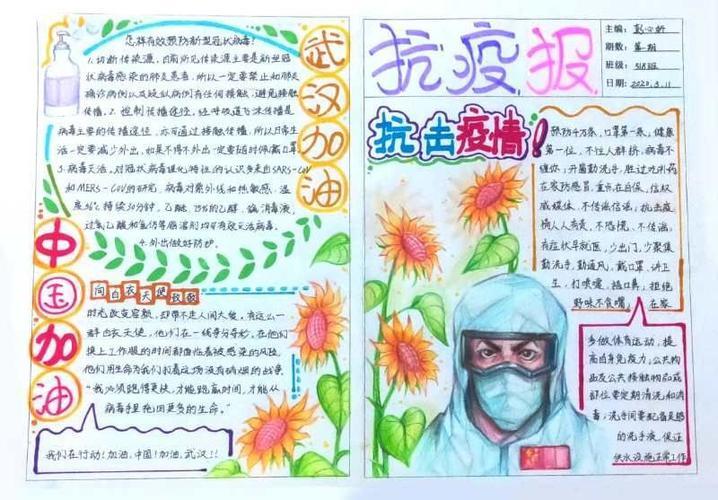 怎样有效预防新型冠状病毒?
1.切断传染源,目前所见传染源主要是新型冠
状病毒感染的肺炎患者,所以一定要禁止和肺炎
确诊病例以及疑似病例有任何接触,避免接触
传播。2.控制传播途径,经呼吸道飞沫传播是
病毒主要的传播途径,亦可通过接触传播,所以日常生
活一定要减少外出,如果不得不外出一定要随时佩戴口罩
3.病毒灭活,对冠状病毒理化特性的认识多来自SARS-CoV
和MERS-CoV的研究,病毒对紫外线和热敏感,温
度56℃持续30分钟,乙醚,75%的乙醇,含氯消毒液,
过氧乙酸和氯仿等脂溶剂均可有效灭活病毒。
4.外出做好防护。
武汉加油
中国加油
向白衣天使致敬
时光改变容颜,却带不走人间大爱,有这么一
群白衣天使,他们在一线争分夺秒,在他们
换上工作服的时间都面临着被感染的风险,
他们用生命为我们打着这场没有硝烟的战争
“我必须跑得更快,才能跑赢时间,才能从
病毒手里抢回更多的生命。”
我们在行动!加油,中国!加油,武汉!!
抗疫报
主编:
期数:第一期
班级:
日期:2020.3.11
抗击疫情!
预防千万条,口罩第一条,健康
第一位,不往人群挤,病毒不
缠你;开窗勤洗手,胜过吃补药
在家防感员,重点在自保,信权
威媒体,不传谣信谣;抗击疫
情人人有责,不恐慌,不传谣,
有症状早就医,少出门,少聚集
勤洗手,勤通风,戴口罩,讲卫
生,打喷嚏,捂口鼻,拒绝
野味不贪嘴。在家
多做体育运动,提
高自身免疫力;公共物
品及公共接触物品或
部位要定期清洗和消
毒;洗手间要配备足够
的洗手液,保证
供水设施正常工作